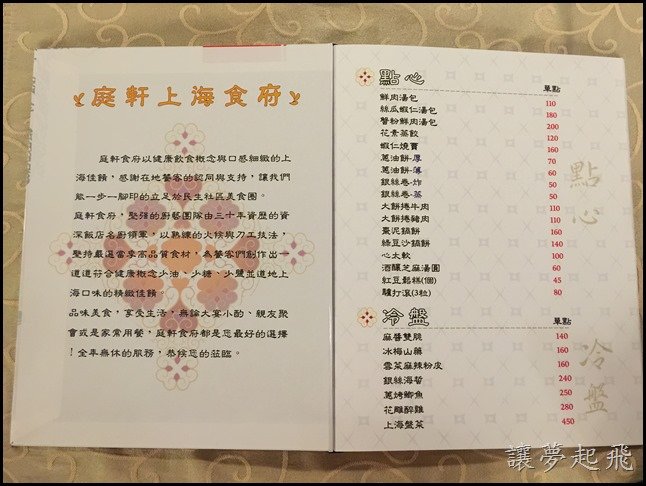 庭軒上海食府
庭軒食府以健康飲食概念與口感細緻的上
海佳餚，感謝在地饕客的認同與支持，讓我們
能一步一腳印的立足於民生社區美食圈。
庭軒食府，堅強的廚藝團隊由三十年資歷的資
深飯店名廚領軍，以熟練的火候與刀工技法，
堅持嚴選當季高品質食材，為饕客們創作出一
道道符合健康概念少油、少糖、少鹽並道地上
海口味的精緻佳餚。
品味美食，享受生活，無論大宴小酌、親友聚
會或是家常用餐，庭軒食府都是您最好的選擇
！全年無休的服務，恭候您的蒞臨。
點心 單點
鮮肉湯包 110
絲瓜蝦仁湯包 180
蟹粉鮮肉湯包 200
花素蒸餃 120
蝦仁燒賣 160
蔥油餅-厚 70
蔥油餅-薄 60
銀絲卷-炸 50
銀絲卷-蒸 50
大餅捲牛肉 110
大餅捲豬肉 110
棗泥鍋餅 160
綠豆沙鍋餅 140
心太軟 100
酒釀芝麻湯圓 60
紅豆鬆糕(個) 45
驢打滾(3粒) 80
點心
冷盤 單點
麻醬雙脆 140
冰梅山藥 160
雪菜麻辣粉皮 160
銀絲海蜇 240
蔥烤鯽魚 250
花雕醉雞 280
上海盤菜 450
冷盤
讓夢起飛